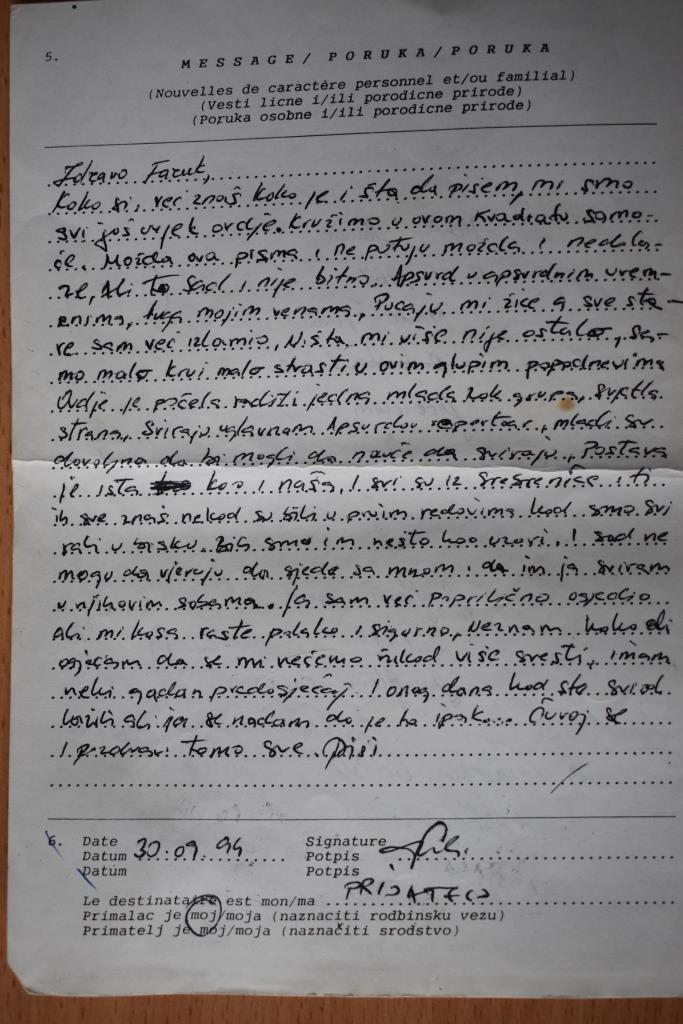 5.
MESSAGE/ PORUKA/PORUKA
(Nouvelles de caractère personnel et/ou familial)
(Vesti licne i/ili porodicne prirode)
(Poruka osobne i/ili porodicne prirode)
Zdravo Faruk,
Kako si, već znaš kako je i šta da pišem, mi smo
svi još uvjek ovdje. Kružimo u ovom kvadratu samo-
će. Možda ova pisma i ne putuju možda i nedola-
ze, Ali to sad i nije bitno. Apsurd u apsurdnim vrem-
enima, tuga mojim venama, Pucaju mi žice a sve sta-
re sam već izlomio, Ništa mi više nije ostalo, sa-
mo malo krvi malo strasti u ovim glupim popodnevima
Ovdje je počela raditi jedna mlada rok grupa, svjetla
strana, Sviraju uglavnom Apsurdov repertoar, mladi su
dovoljno da bi mogli da nauče da sviraju, Postava
je ista kao i naša, I svi su iz Srebrenice i ti
ih sve znaš nekad su bili u prvim redovima kad smo svi
rali u disku. Bili smo im nešto kao uzori, I sad ne
mogu da vjeruju da sjede sa mnom i da im ja sviram
u njihovim sobama. Ja sam već poprilično osjedio
Ali mi kosa raste polako i sigurno, Neznam kako ali
osjećam da se mi nećemo nikad više sresti, imam
neki gadan predosjećaj I onog dana kad ste
ali ja se nadam da je to ipak... Čuvaj se
I pozdravi tamo sve Piši
6. Date
Datum 30.09.94
Datum
Signature
Potpis
Potpis
Le destinataire est mon/ma PRIJATELJ
Primalac je moj/moja (naznaciti rodbinsku vezu)
Primatelj je moj/moja (naznačiti srodstvo)